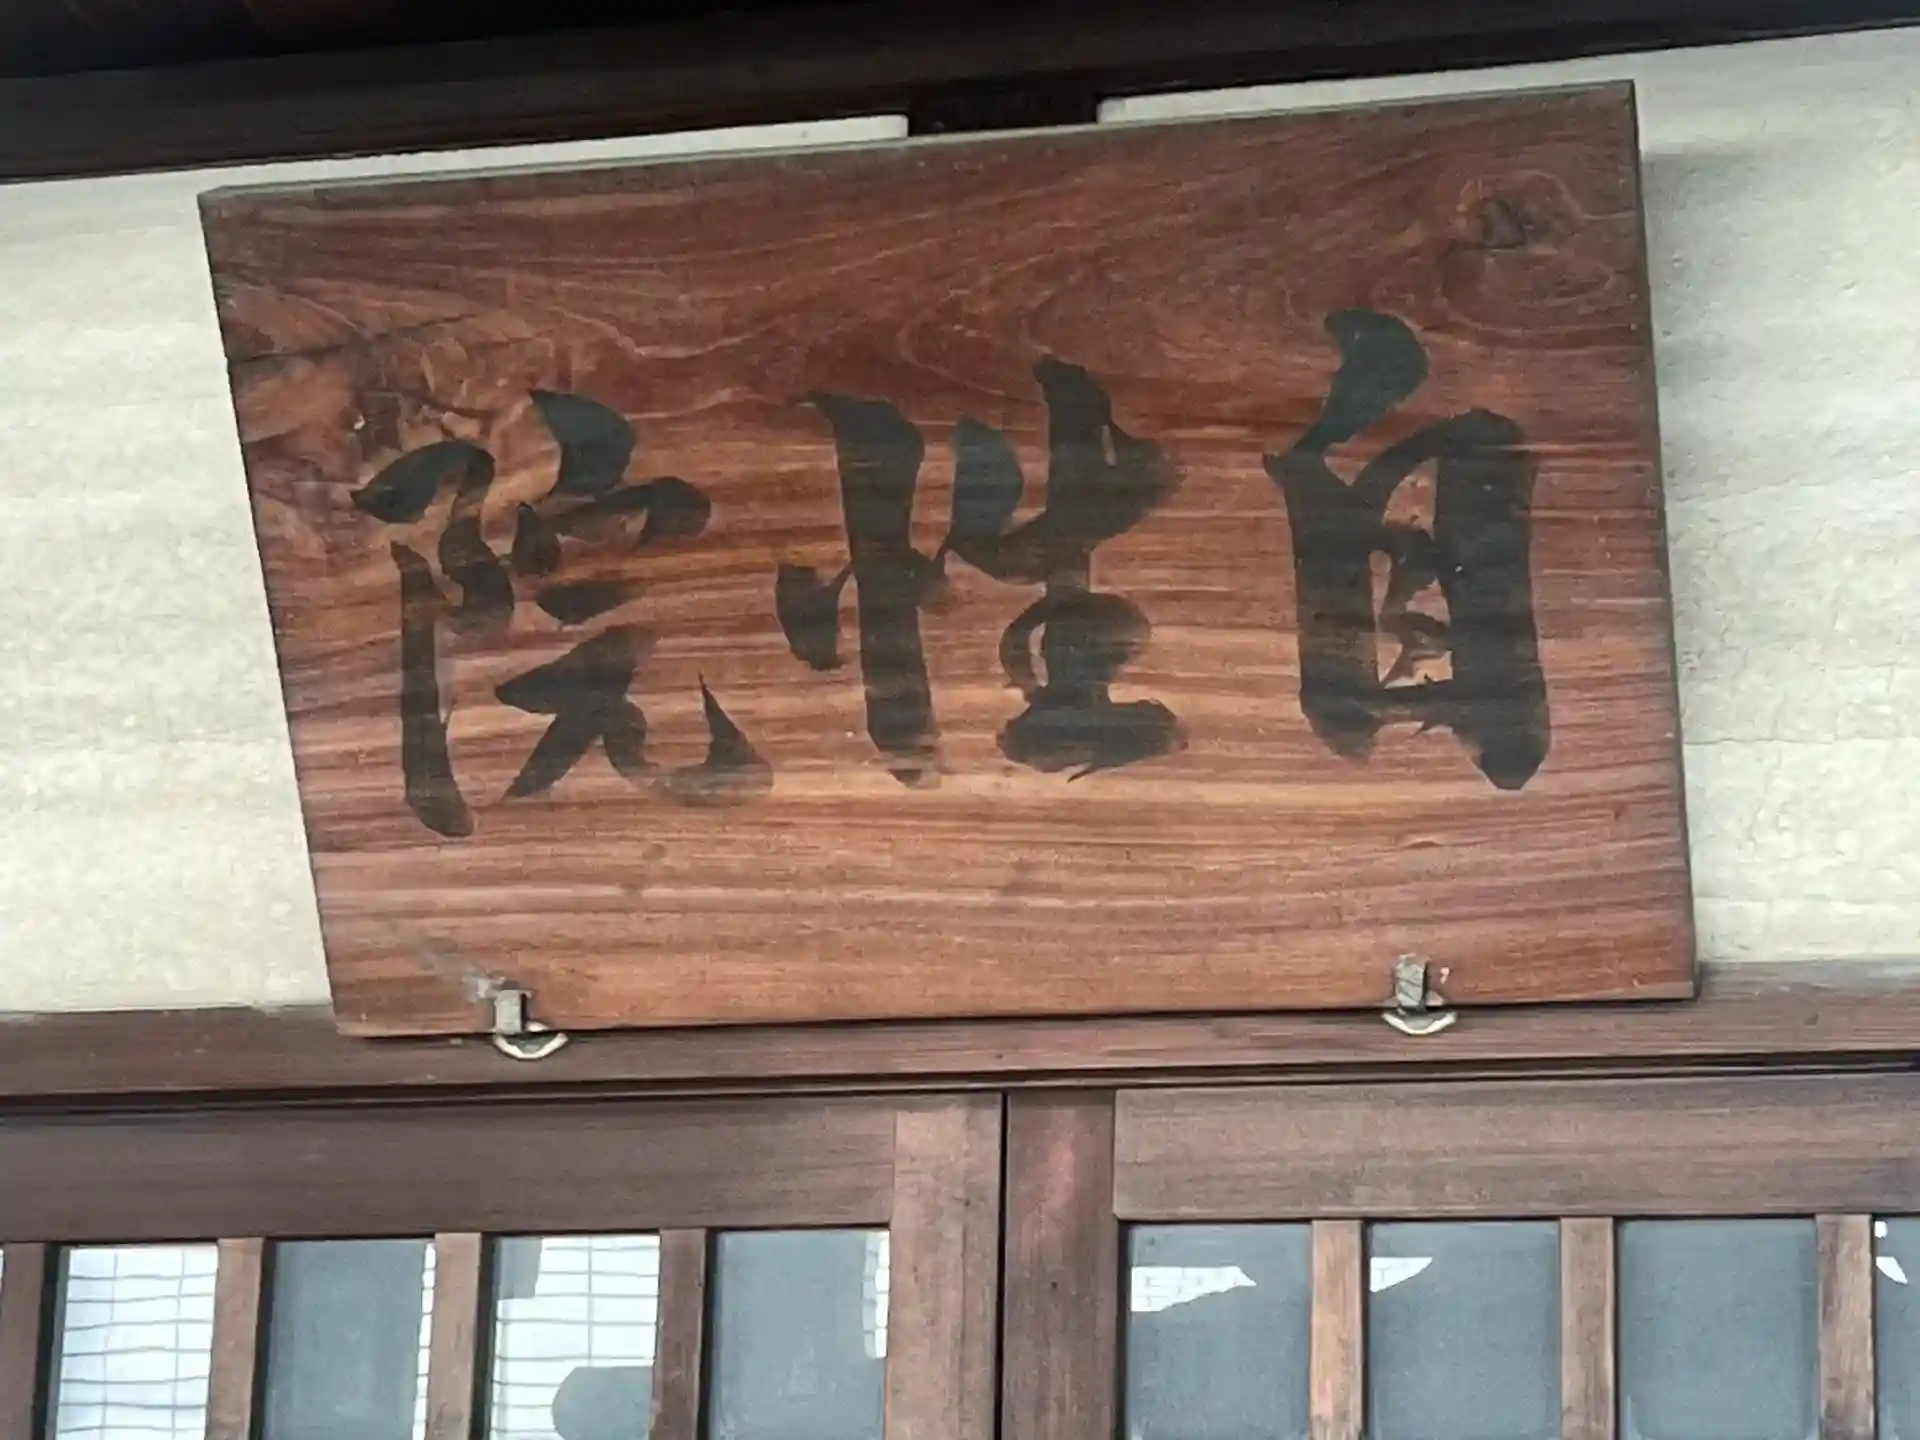 自性院